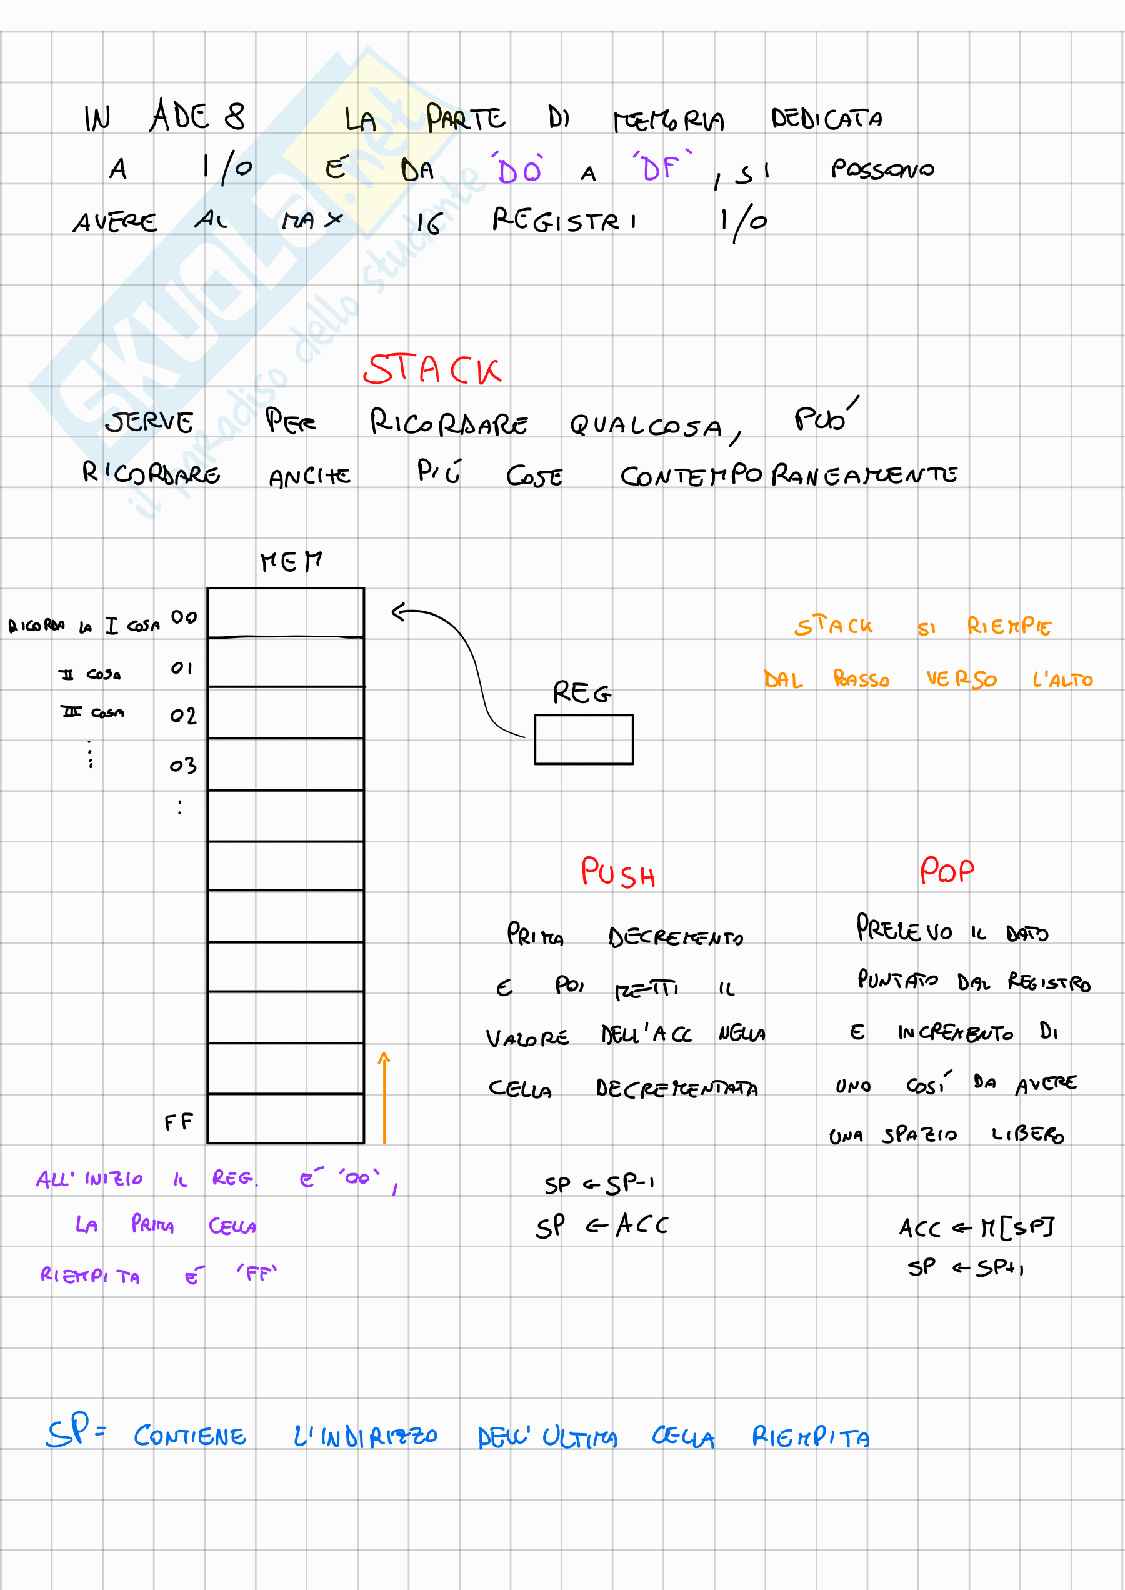 IN ADE 8 LA PARTE DI MEMORIA DEDICATA
A I/O É DA 'D0' A 'DF', SI POSSONO
AVERE AL MAX 16 REGISTRI I/O
SKUOLA.net
il paradiso dello studente
STACK
SERVE PER RICORDARE QUALCOSA, PUÓ
RICORDARE ANCHE PIÚ COSE CONTEMPORANEAMENTE
MEM
RICORDA LA I COSA 00
II COSA 01
III COSA 02
⋮ 03
:
FF
REG
STACK SI RIEMPIE
DAL BASSO VERSO L'ALTO
PUSH
PRIMA DECREMENTO
E POI METTI IL
VALORE DELL'ACC NELLA
CELLA DECREMENTATA
SP ← SP-1
SP ← ACC
POP
PRELEVO IL DATO
PUNTATO DAL REGISTRO
E INCREMENTO DI
UNO COSÍ DA AVERE
UNA SPAZIO LIBERO
ACC ← M[SP]
SP ← SP+1
ALL'INIZIO IL REG. É '00',
LA PRIMA CELLA
RIEMPITA É 'FF'
SP = CONTIENE L'INDIRIZZO DELL'ULTIMA CELLA RIEMPITA